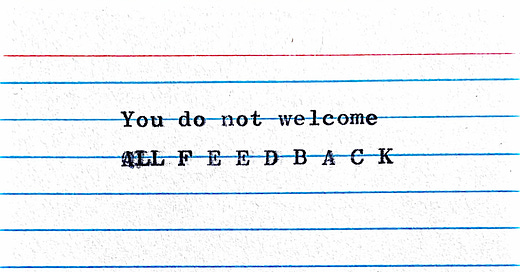 You do not welcome
ALL F E E D B A C K